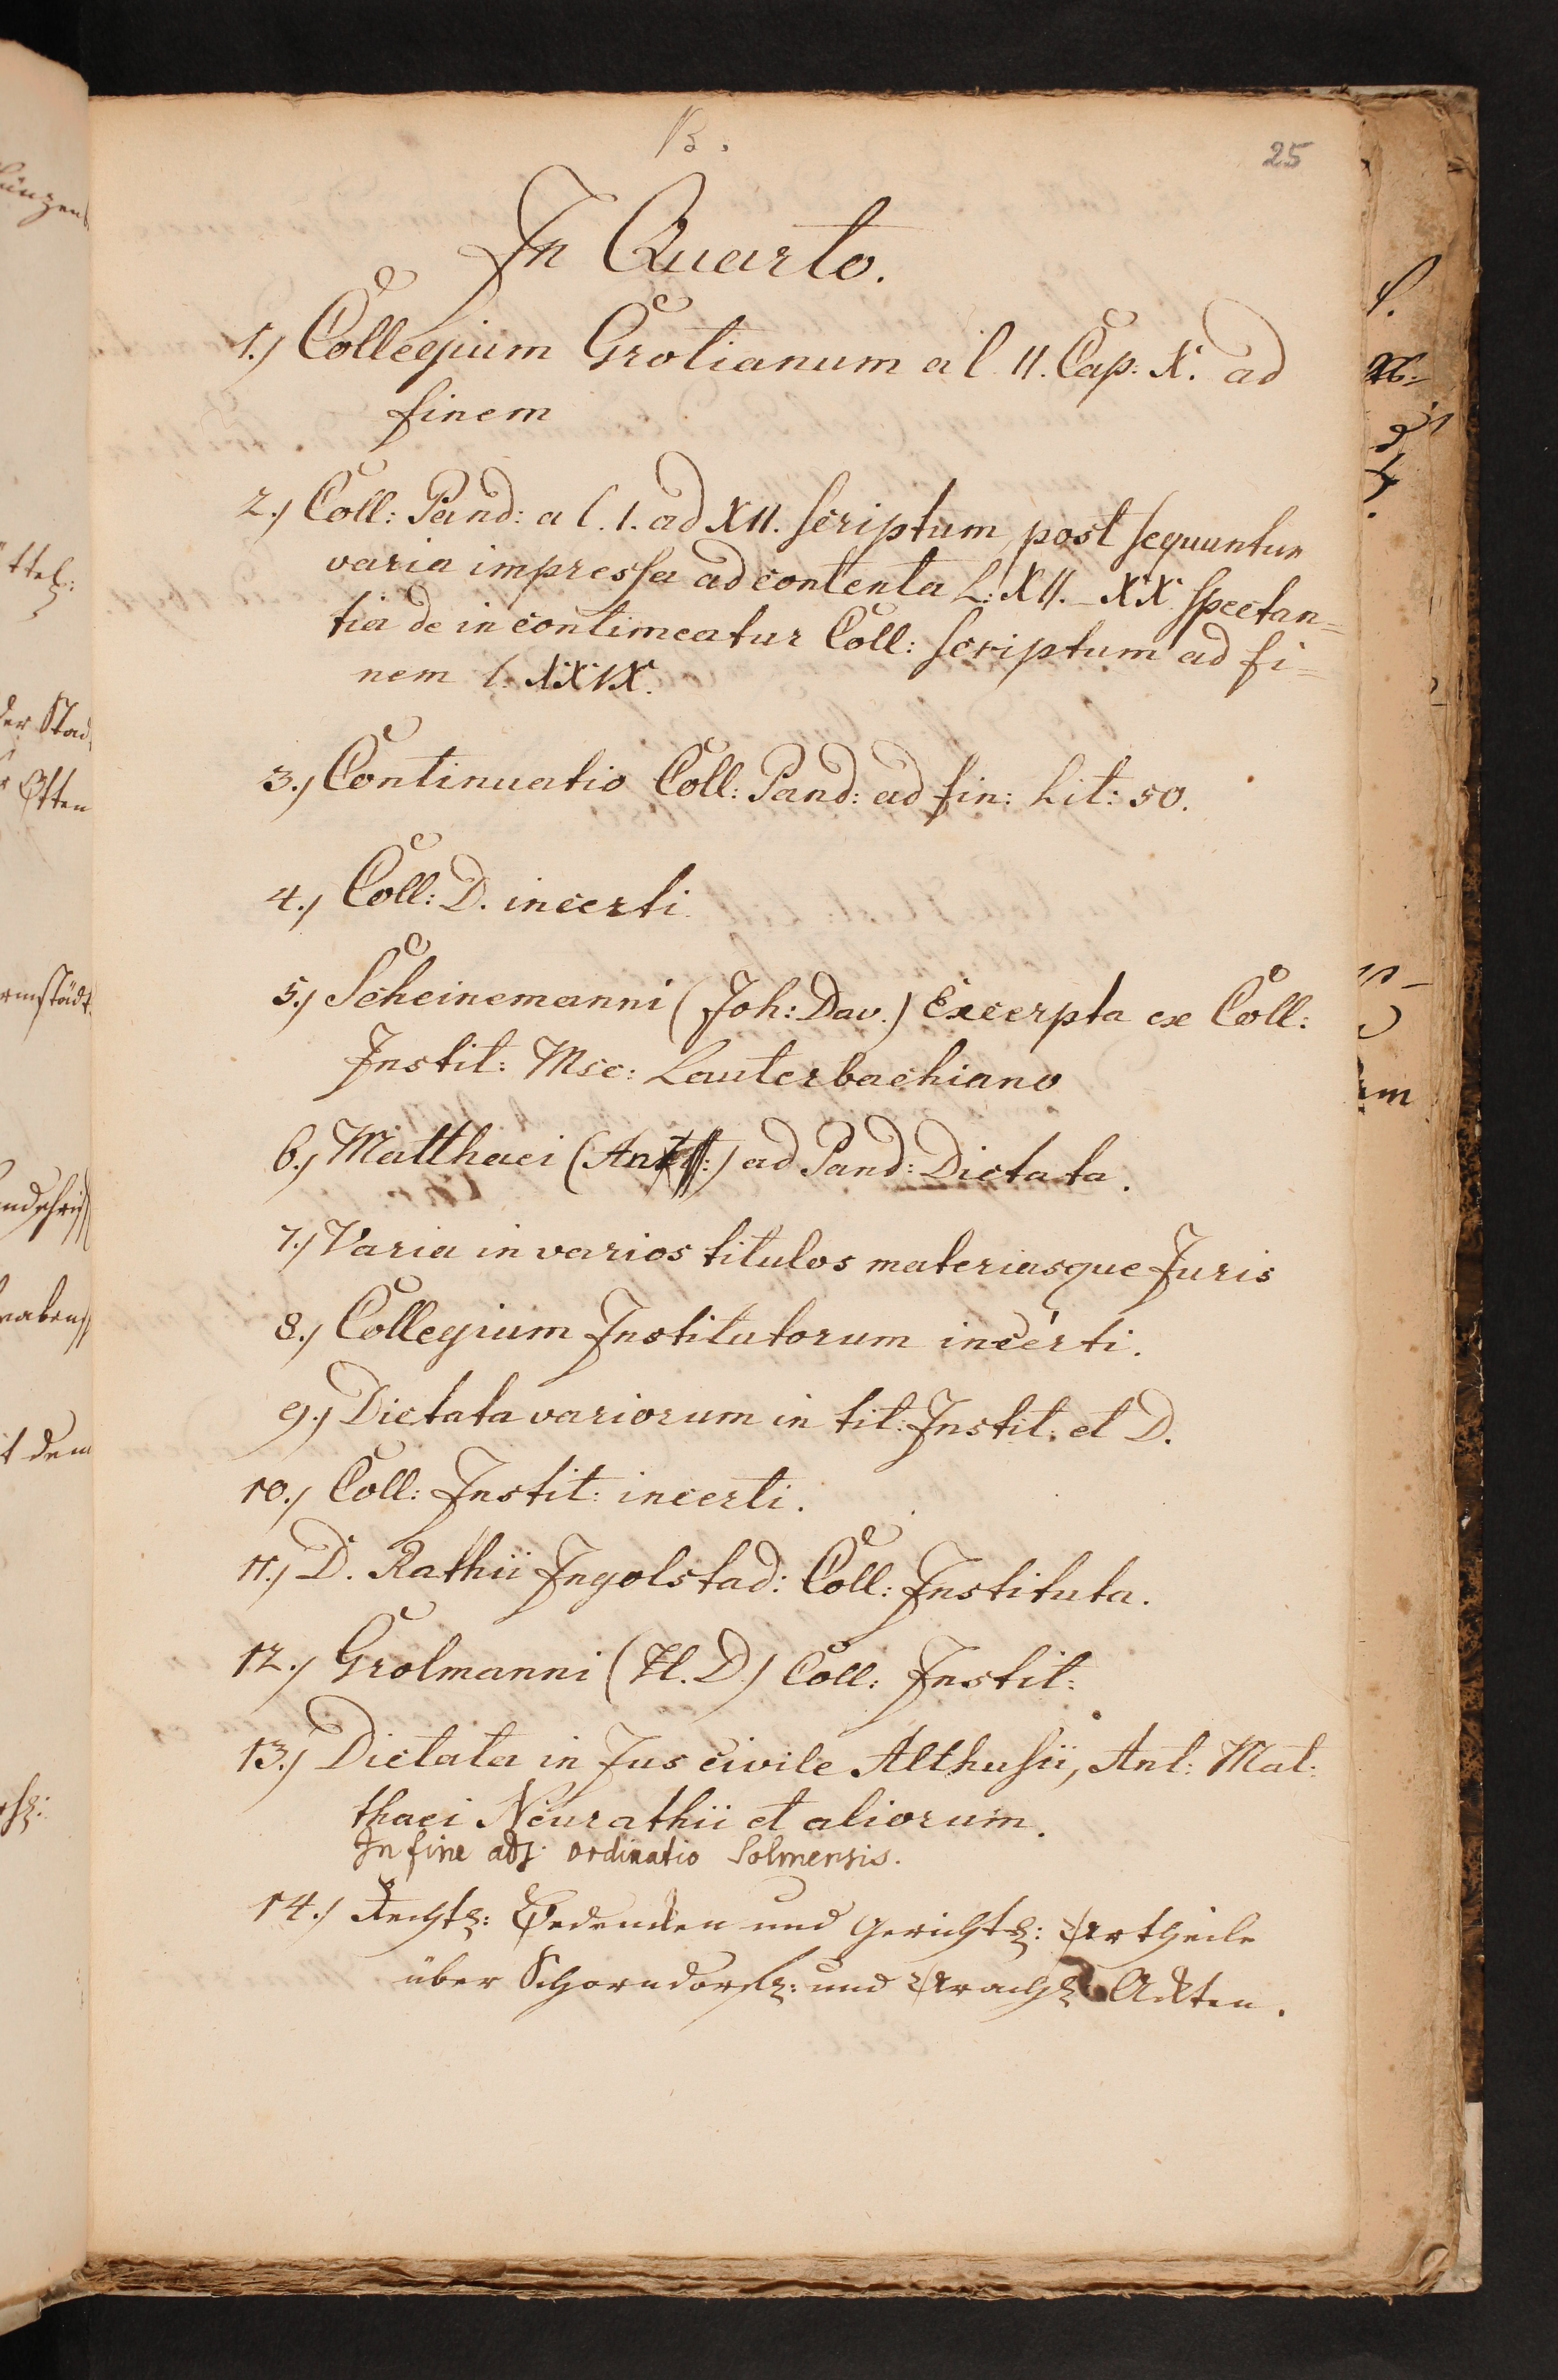 B.
25
In Quarto.
1.) Collegium Grotianum a l. II. Cap: X. ad
finem
2.) Coll: Pand: a l. 1. ad XII. scriptum post sequuntur
varia impressa ad contenta L: XII. - XX. spectan=
tia de in contimeatur Coll: scriptum ad fi=
nem l. XXIX.
3.) Continuatio Coll: Pand: ad fin: Lit: 50.
4.) Coll: D. incerti.
5.) Scheinemanni (Joh: Dav.) Excerpta ex Coll:
Instit: Msc: Lauterbachiano
6.) Matthaei ( ) ad Pand: Dictata.
7.) Varia in varios titulos materiasque Juris
8.) Collegium Institutorum incerti.
9.) Dictata variorum in tit: Instit: et D.
10.) Coll: Instit: incerti.
11.) D. Rathii Ingolstad: Coll: Instituta.
12.) Grolmanni (H. D.) Coll: Instit:
13.) Dictata in Jus civile Althusii, Ant: Mat:
thaei Neurathii et aliorum.
In fine adj: ordinatio Solmensis.
14.) Rechts: Bedencken und Gerichts: Urtheile
über Schorndorfs: und Urachs Ackten.